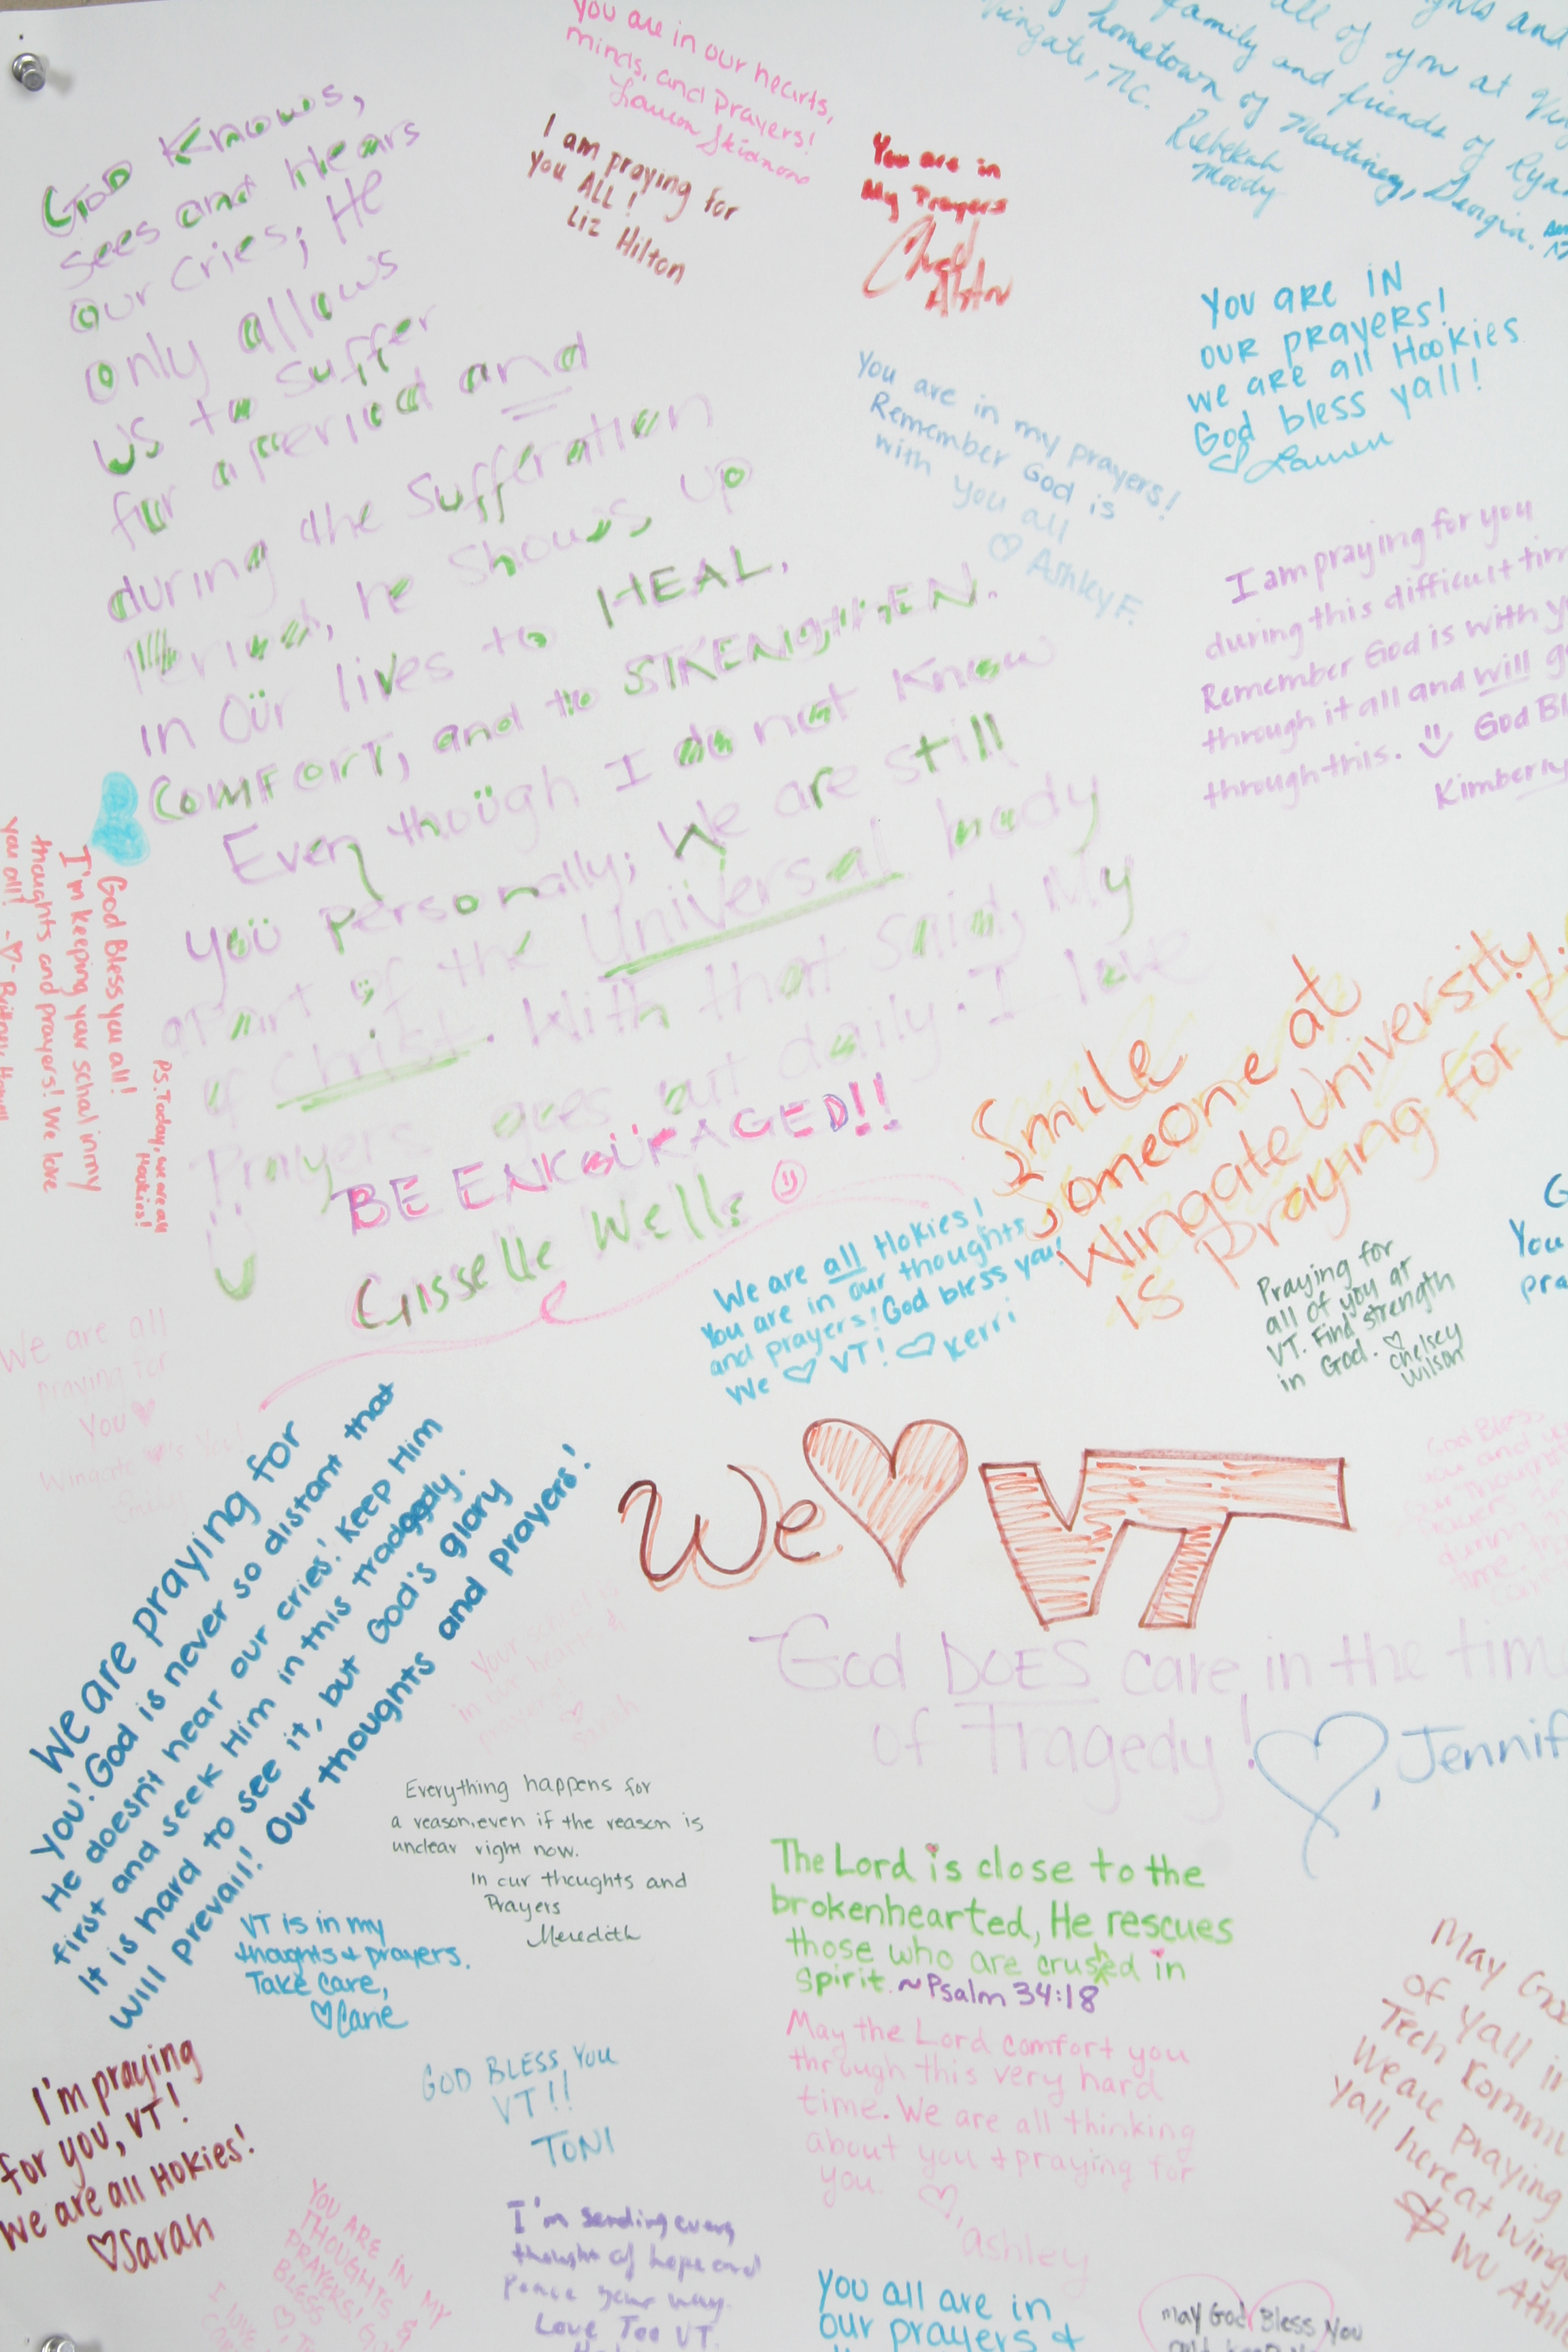 You are in our hearts,
minds, and Prayers!
I am praying for
You ALL!
Liz Hilton
You are in
My Prayers
all of you at
family and friends of Ryan
hometown of Martinez, Georgia.
Wingate, NC.
Rebekah
Moody
God Knows,
sees and Hears
our cries; He
only allows
us to suffer
for a period and
during the sufferation
Period, he shows up
in our lives to HEAL,
COMFORT, and to STRENGTHEN.
Even though I do not know
you personally; We are still
a part of the Universal body
of Christ. With that said, My
Prayers goes out daily. I love
U
BE ENKOURAGED!!
Gisselle Wells
You are IN
our prayers!
we are all Hookies
God bless yall!
Lauren
You are in my prayers!
Remember God is
with you all
Ashley F.
I am praying for you
during this difficult tim
Remember God is with y
through it all and will g
through this. God Bl
Kimberly
God Bless you all!
I'm keeping your school in my
thoughts and prayers! We love
you all!
P.S. Today, we are all
Hookies!
Smile
Someone at
Wingate University
is Praying for
We are all Hokies!
You are in our thoughts
and prayers! God bless you!
We ♡ VT! ♡ Kerri
Praying for
all of you at
VT. Find strength
in God. ♡
Chelsey
Wilson
G
You
pra
We are all
praying for
You
Wingate ♥'s You!
Emily
We ♥ VT
We are praying for
you! God is never so distant that
He doesn't hear our cries! Keep Him
first and seek Him in this tradgedy.
It is hard to see it, but God's glory
will prevail! Our thoughts and prayers!
God Bless
you and
Your school is
in our hearts &
prayers!
♡
Sarah
God DOES care in the tim
of Tragedy!
♡, Jennif
Everything happens for
a reason, even if the reason is
unclear right now.
In our thoughts and
Prayers
Meredith
The Lord is close to the
brokenhearted, He rescues
those who are crushed in
spirit. ~Psalm 34:18
VT is in my
thoughts + prayers.
Take care,
May the Lord comfort you
through this very hard
time. We are all thinking
about you + praying for
you.
♡,
ashley
May God
of Yall i
Tech Kommu
We are Praying
Yall here at Wing
WU Ath
I'm praying
for you, VT!
We are all Hokies!
♡Sarah
GOD BLESS YOU
VT!!
TONI
YOU ARE IN MY
THOUGHTS &
PRAYERS! GOD
BLESS
I'm sending every
thought of hope and
Peace your way.
Love Too VT.
You all are in
our prayers +
May God Bless You